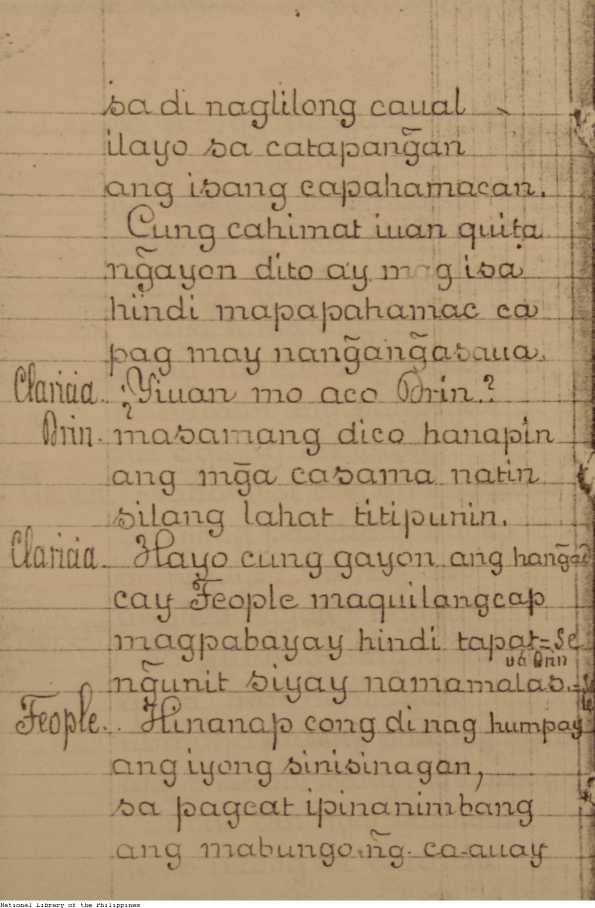 sa di naglilong caual
ilayo sa catapang̃an
ang isang capahamacan.
Cung cahimat iuan quita
ng̃ayon dito ay mag isa
hindi mapapahamac ca
pag may nang̃ang̃asaua.
Claricia. ¿Yiuan mo aco Brin?
Brin. masamang dico hanapin
ang mg̃a casama natin
silang lahat titipunin.
Claricia. Hayo cung gayon ang hang̃ad
cay Feople maquilangcap
magpabayay hindi tapat=Se
va Brin
ng̃unit siyay namamalas.=
Feople. Hinanap cong di nag humpay
ang iyong sinisinagan,
sa pagcat ipinanimbang
ang mabungo ng̃ ca-auay
National Library of the Philippines